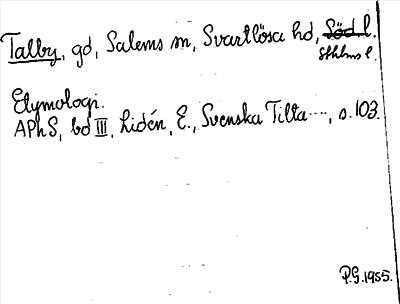 Talby, gd, Salems sn, Svartlösa hd, Söd l.
Sthlms l.
Etymologi.
APhS, bd III, Lidén, E., Svenska Tilta...., s. 103.
P.G. 1955.